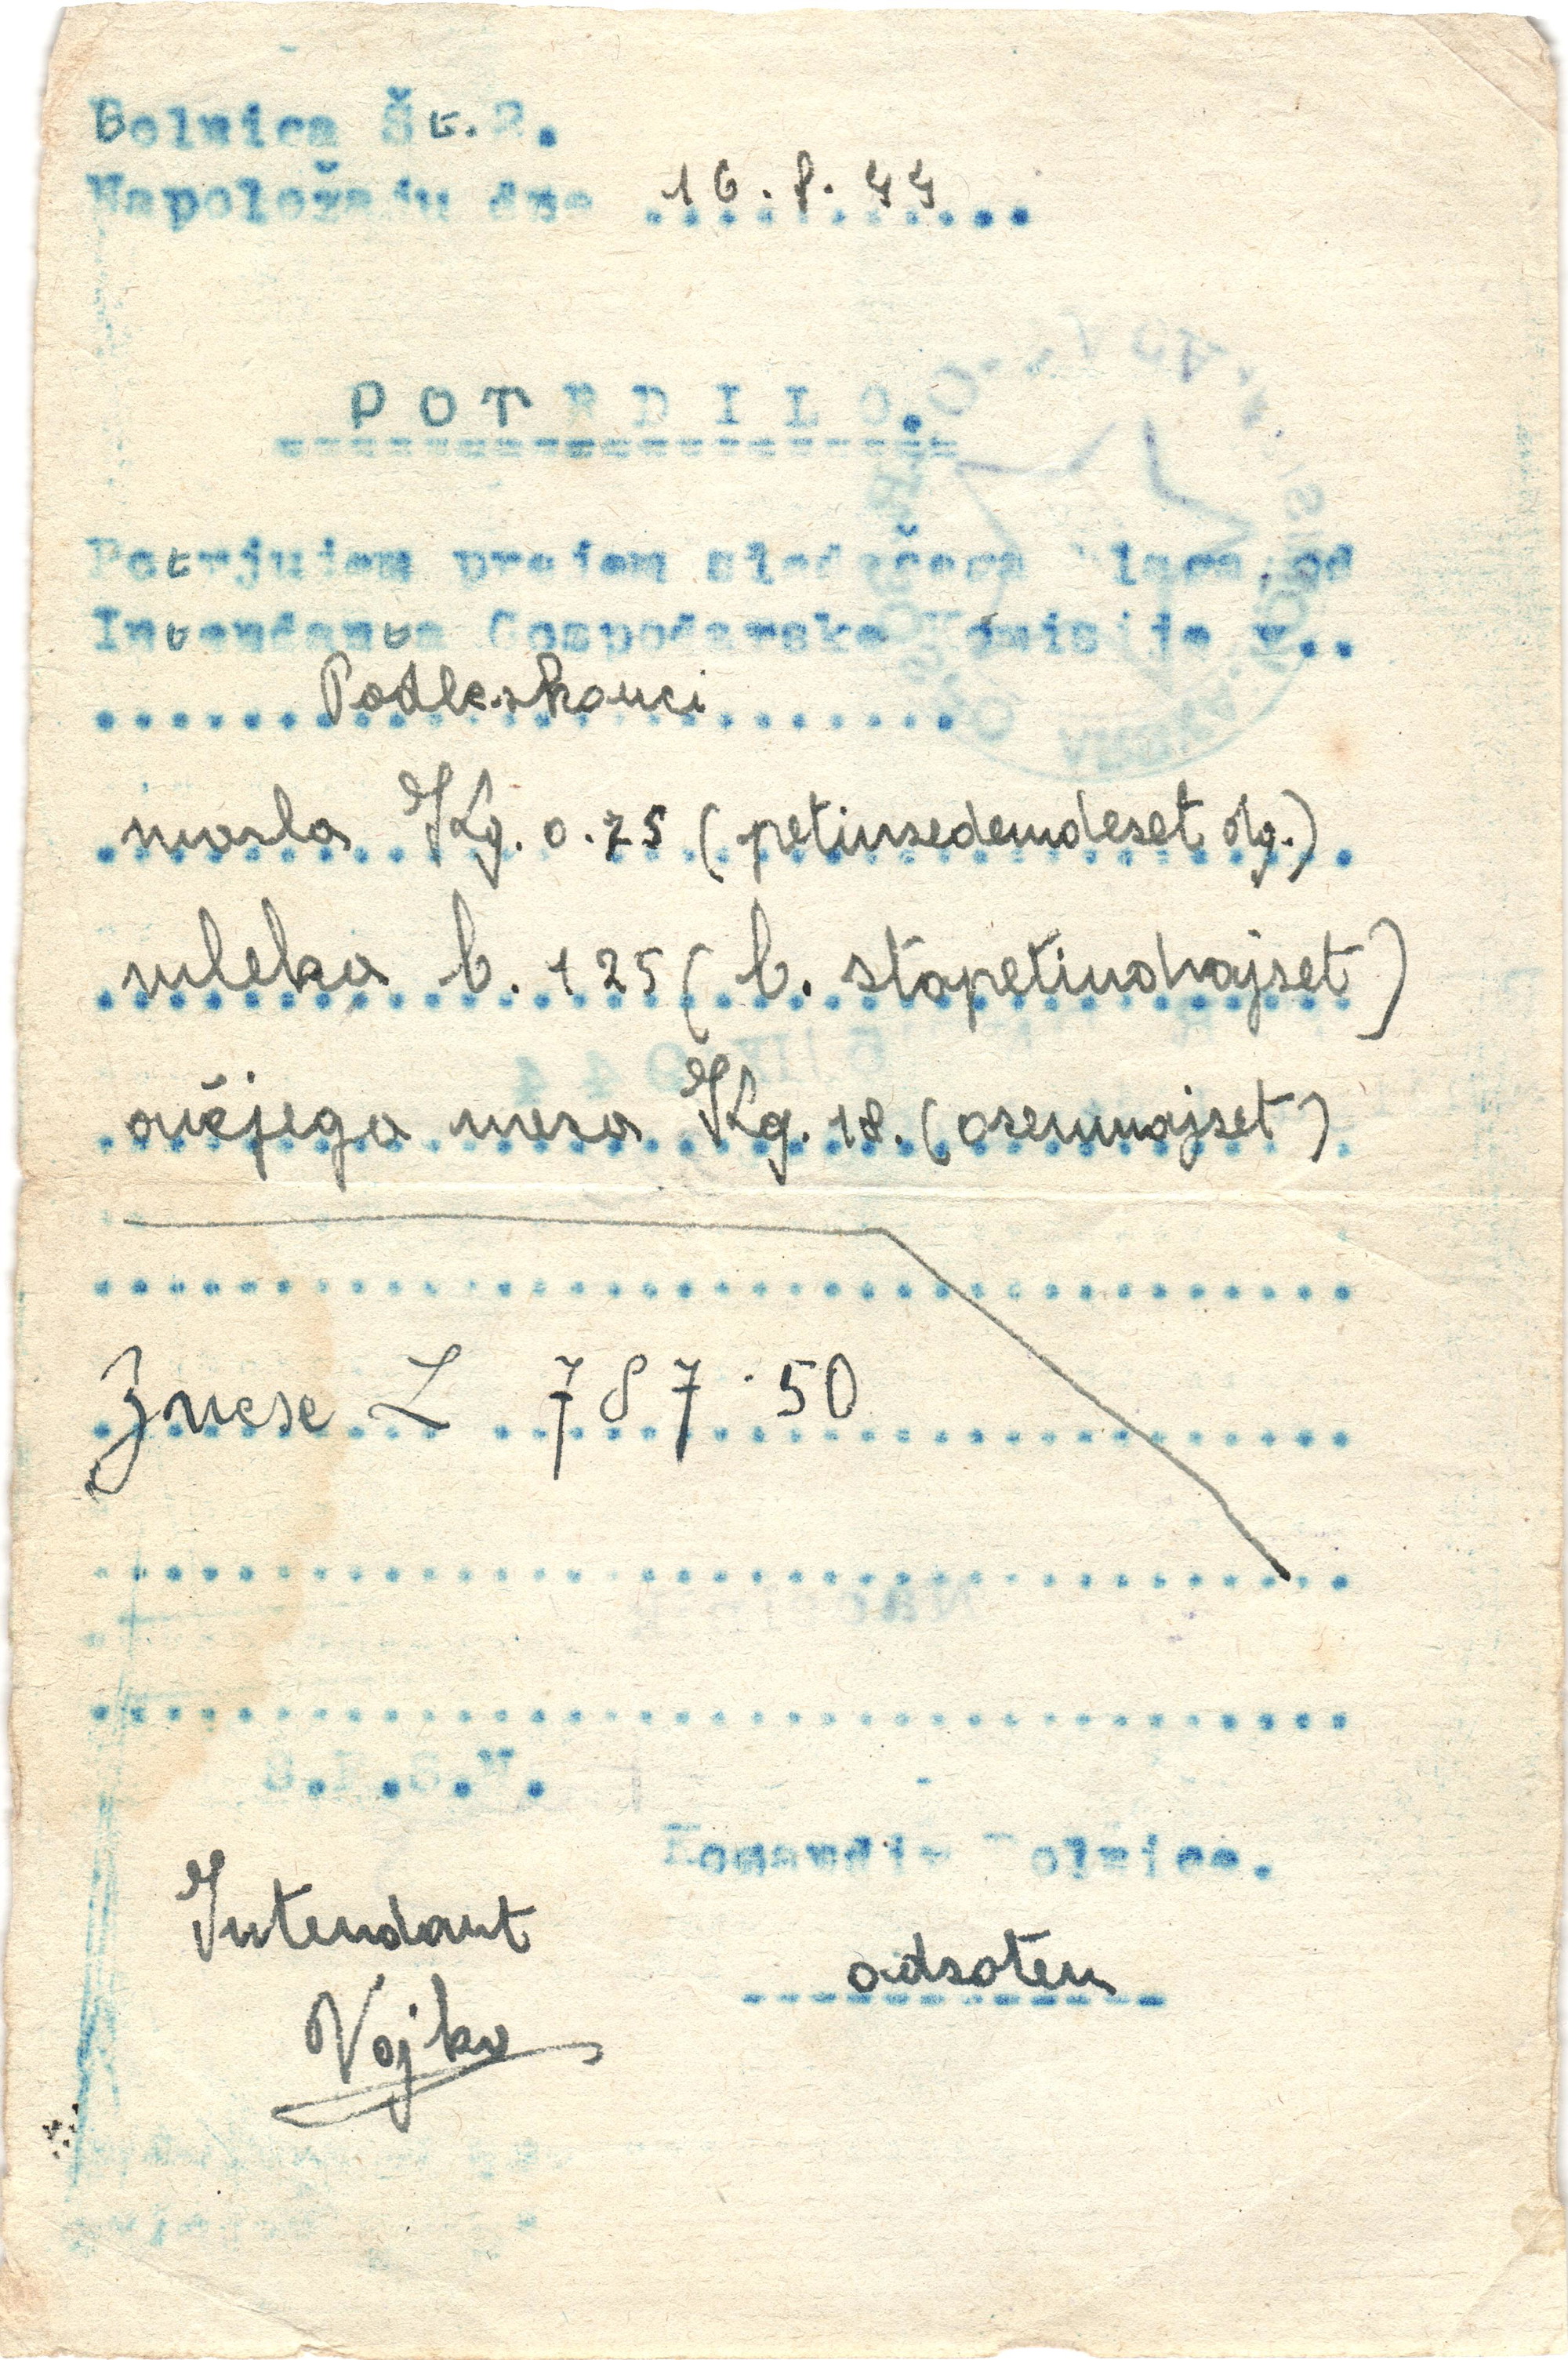 Bolnica Št.
Napoložaju dne 16.8.44
POTRDILO.
Potrjujem prejem sledečega blaga, od
Intendanta Gospodarske Komisije v..
masla Kg. 0.75 (petinsedemdeset dg.)
mleka l. 125 (l. stopetindvajset)
ovčjega mesa Kg. 18. (osemnajset)
Znese L 787.50
S.F.S.N.
Komandir Bolnice.
Intendant
odsoten
Vojko